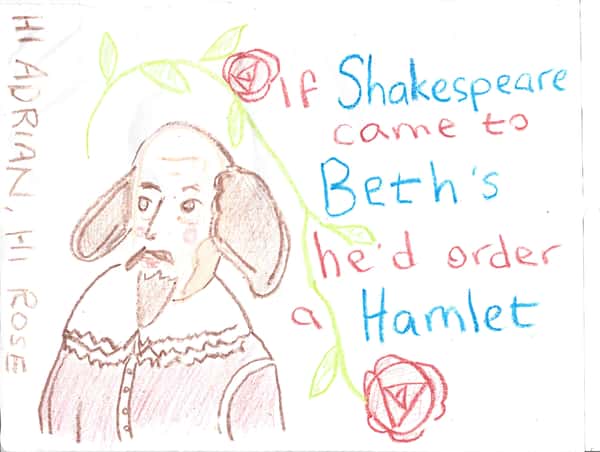 HI ADRIAN, HI ROSE
If Shakespeare
came to
Beth's
he'd order
a Hamlet